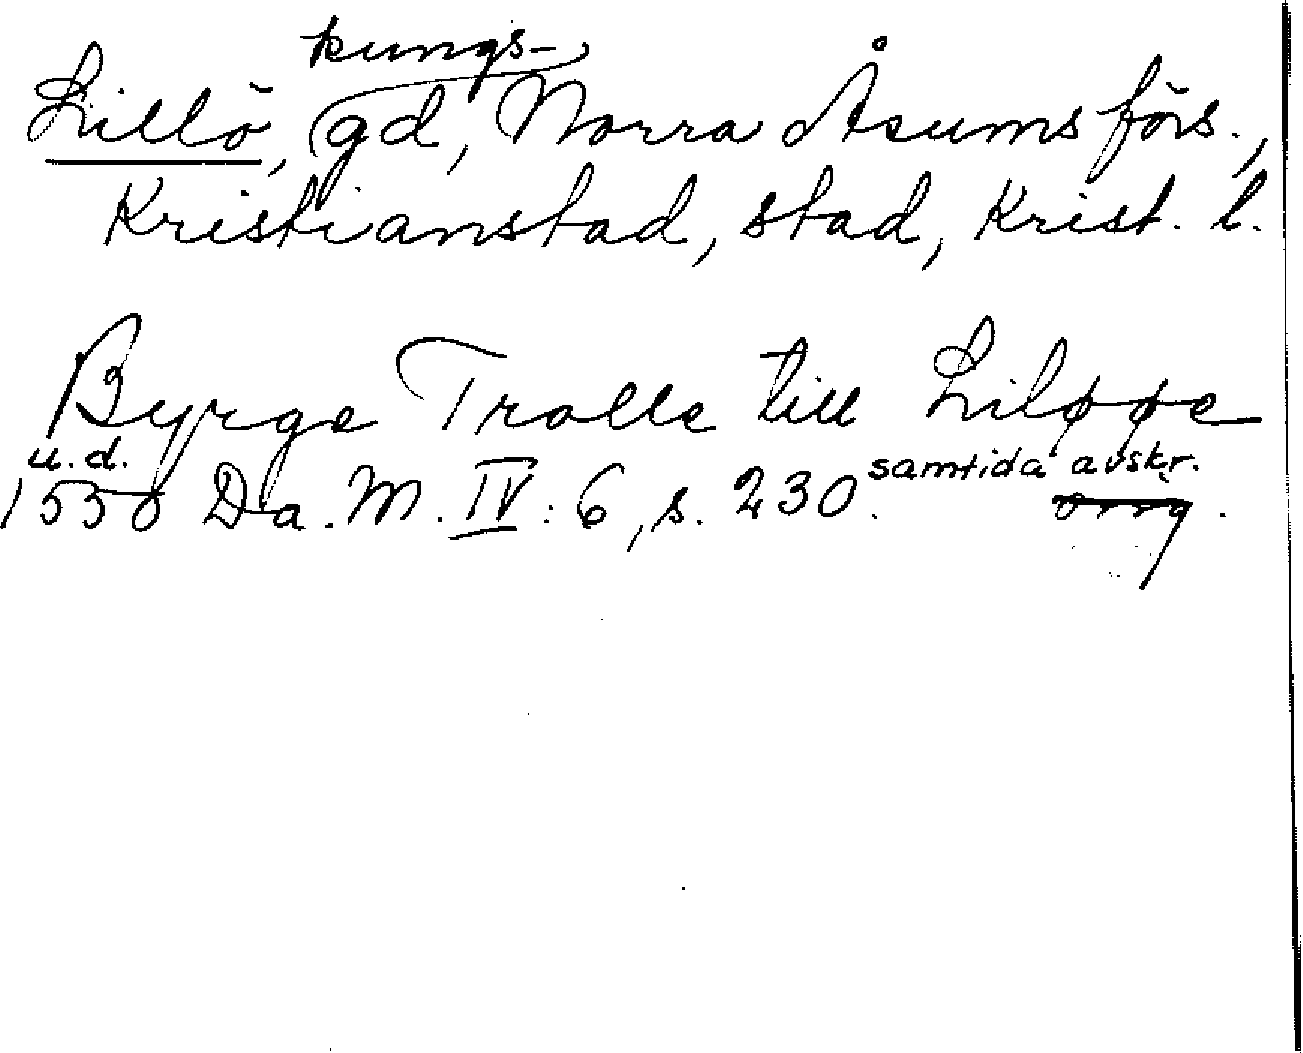 kungs-
Lillö, gd, Norra Åsums förs.,
Kristianstad, stad, Krist. l.
Byrge Trolle till Liløøe
u.d. samtida avskr.
1550 Da. M. IV: 6, s. 230. orig.